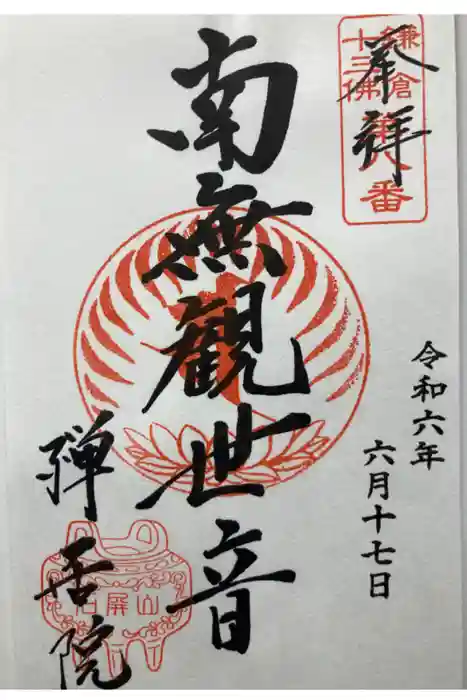 鎌倉
十三佛
第八番
奉拝
南無觀世音
令和六年
六月十七日
禪居院
石屏山